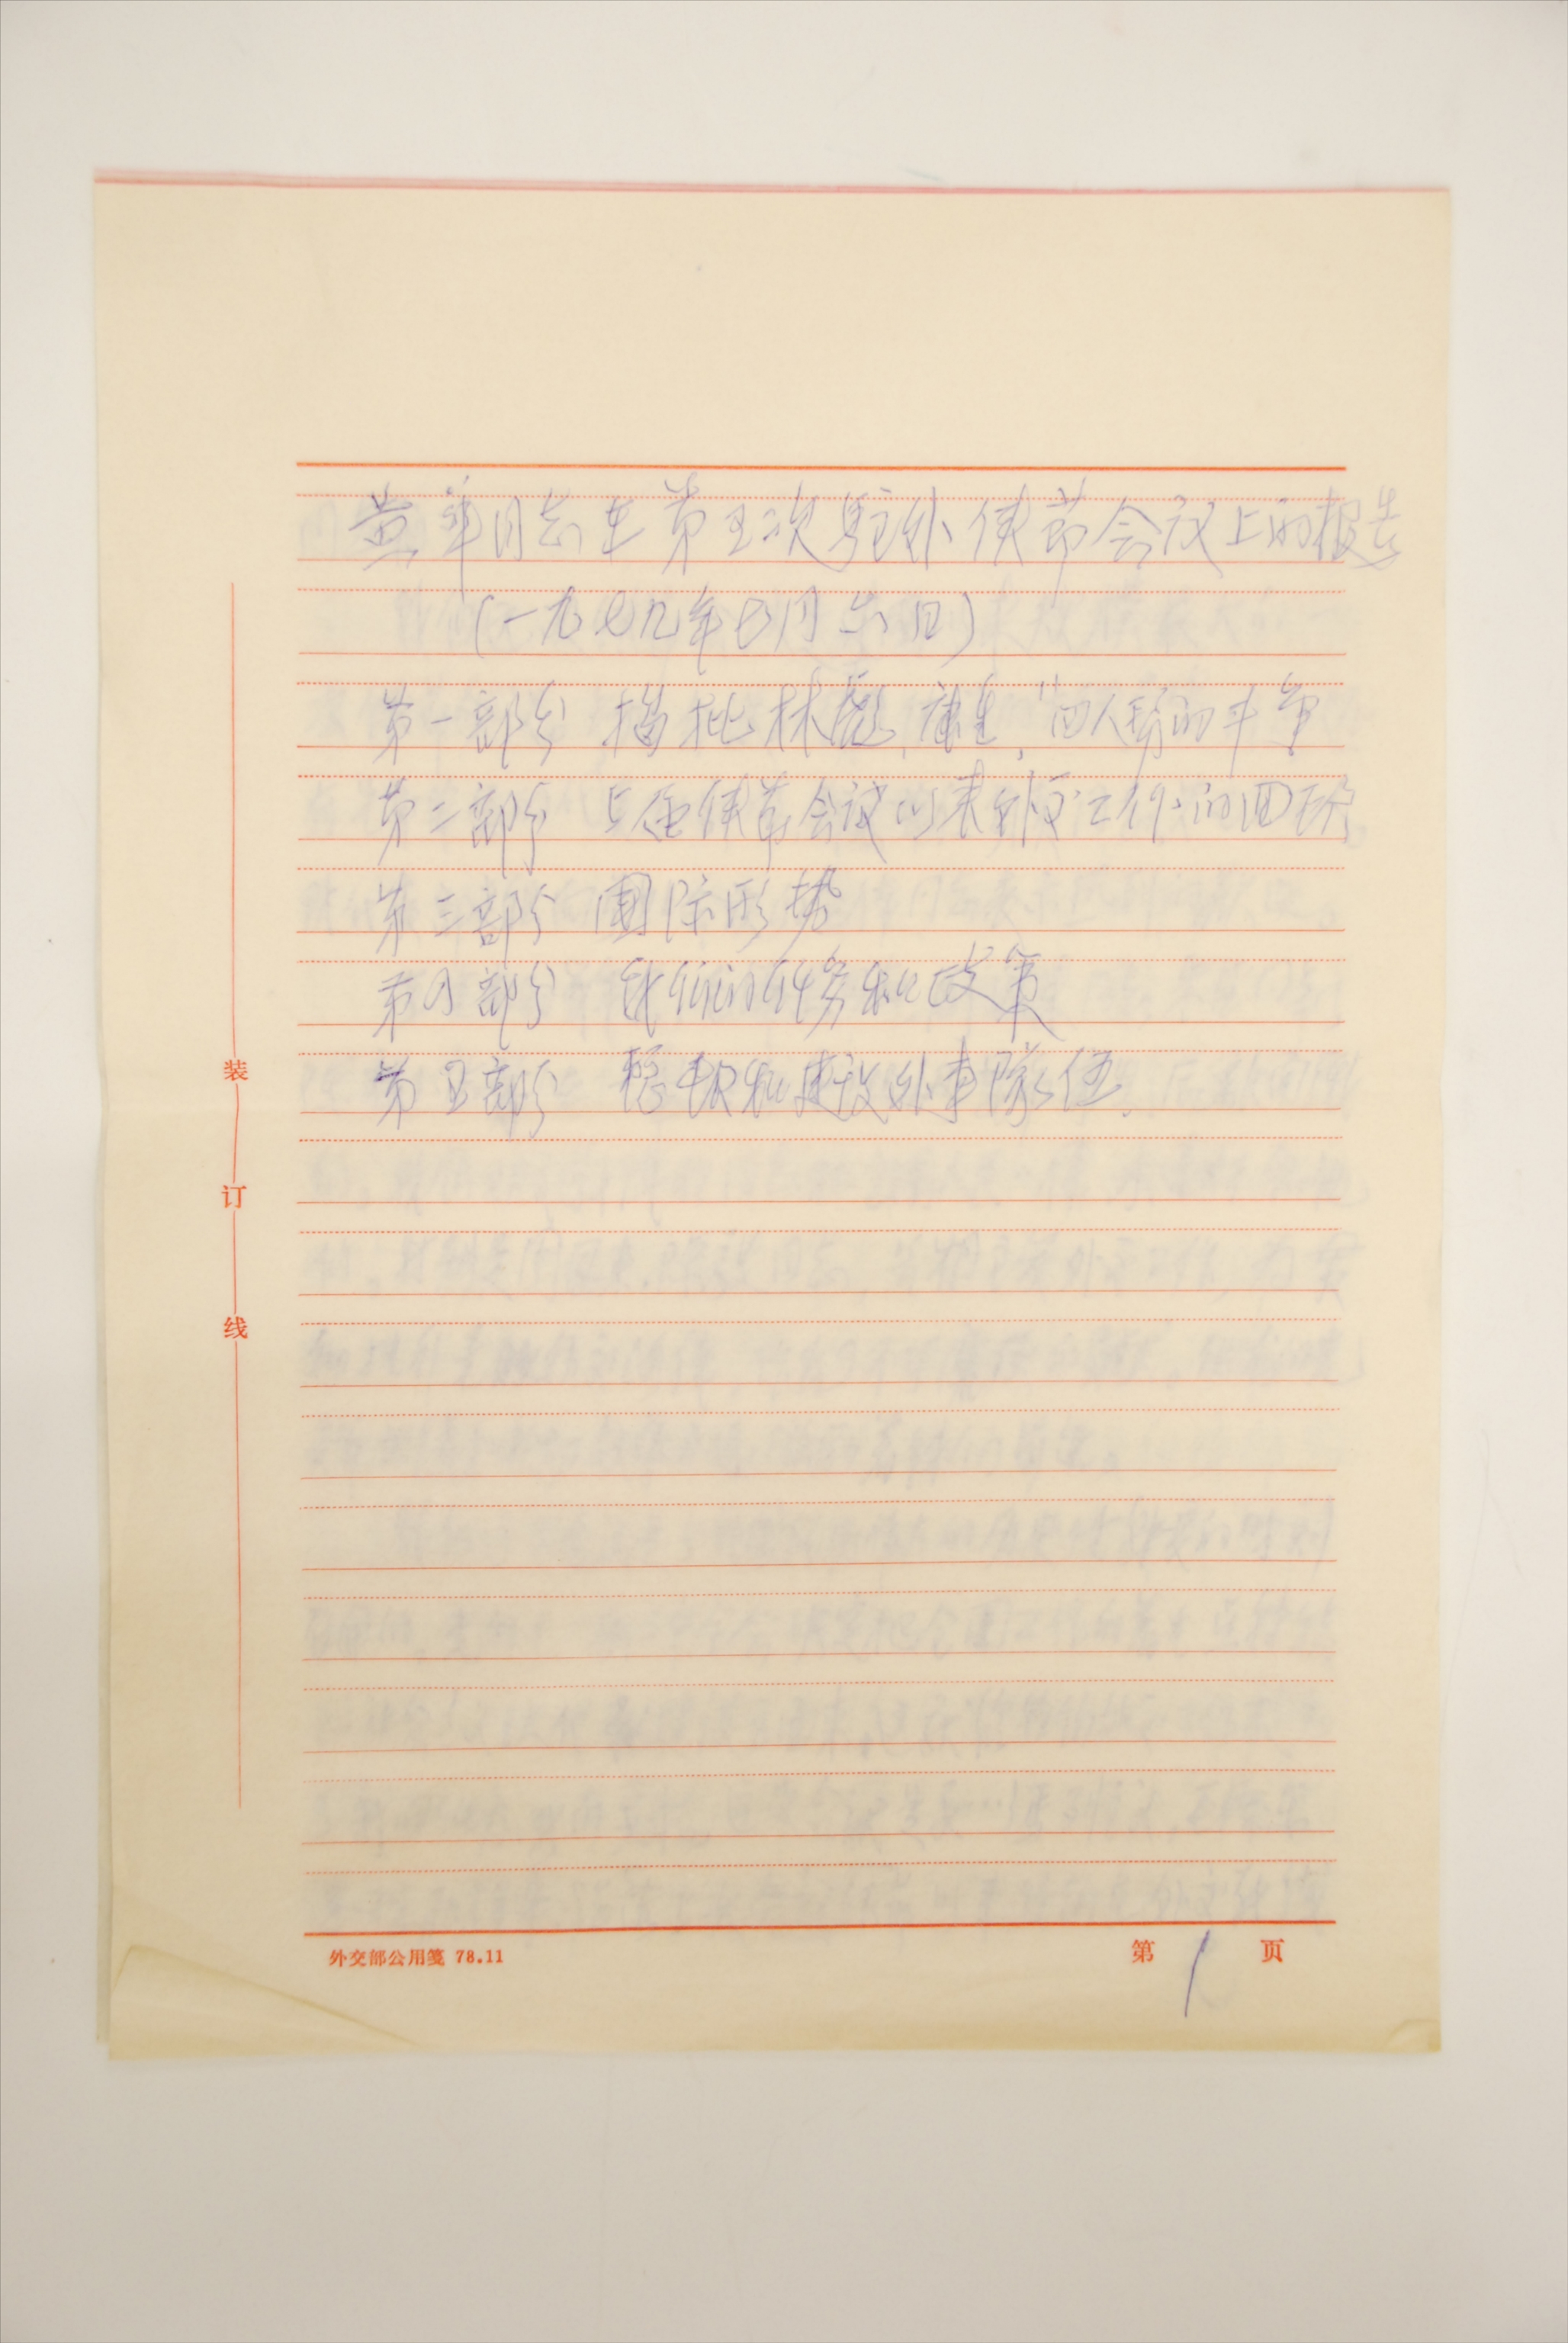 黄华同志在第五次驻外使节会议上的报告
(一九七九年七月六日)
第一部分 揭批林彪,康生,“四人帮的斗争
第二部分 上届使节会议以来外交工作的回顾
第三部分 国际形势
第四部分 我们的任务和政策
第五部分 整顿和建设外事队伍.
装
订
线
外交部公用笺 78.11
第 1 页